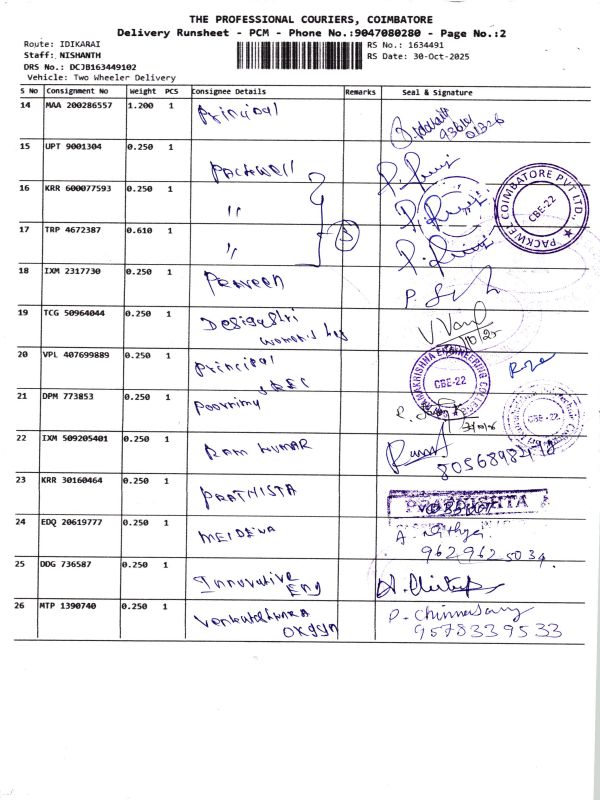 THE PROFESSIONAL COURIERS, COIMBATORE
Delivery Runsheet - PCM - Phone No.:9047080280 - Page No.:2
Route: IDIKARAI
RS No.: 1634491
Staff: NISHANTH
RS Date: 30-Oct-2025
DRS No.: DCJB163449102
Vehicle: Two Wheeler Delivery
S No Consignment No Weight PCS Consignee Details Remarks Seal & Signature
14 MAA 200286557 1.200 1 Principal
15 UPT 9001304 0.250 1 Packwell
16 KRR 600077593 0.250 1 "
17 TRP 4672387 0.610 1 " 3
PACKWEL COIMBATORE PVT LTD.,
CBE-22
18 IXM 2317730 0.250 1 Praveen
19 TCG 50964044 0.250 1
20 VPL 407699889 0.250 1 Principal
RAMAKRISHNA ENGINEERING COLLEGE
CBE-22
21 DPM 773853 0.250 1
CBE-22
22 IXM 509205401 0.250 1 RAM KUMAR
23 KRR 30160464 0.250 1 PRATHISTA
24 EDQ 20619777 0.250 1 MEIDEVA A. Nithya
962 962 5034
25 DDG 736587 0.250 1 Innovative
Eng
26 MTP 1390740 0.250 1 P. Chinnasamy
9578339533